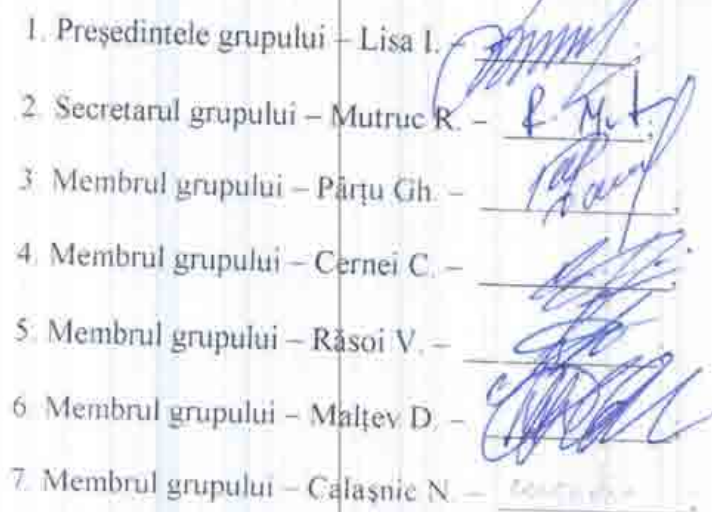 1. Președintele grupului – Lisa I. –
2. Secretarul grupului – Mutruc R. – R. Mut.
3. Membrul grupului – Pârțu Gh. –
4. Membrul grupului – Cernei C. –
5. Membrul grupului – Răsoi V. –
6. Membrul grupului – Malțev D. –
7. Membrul grupului – Calașnic N. –